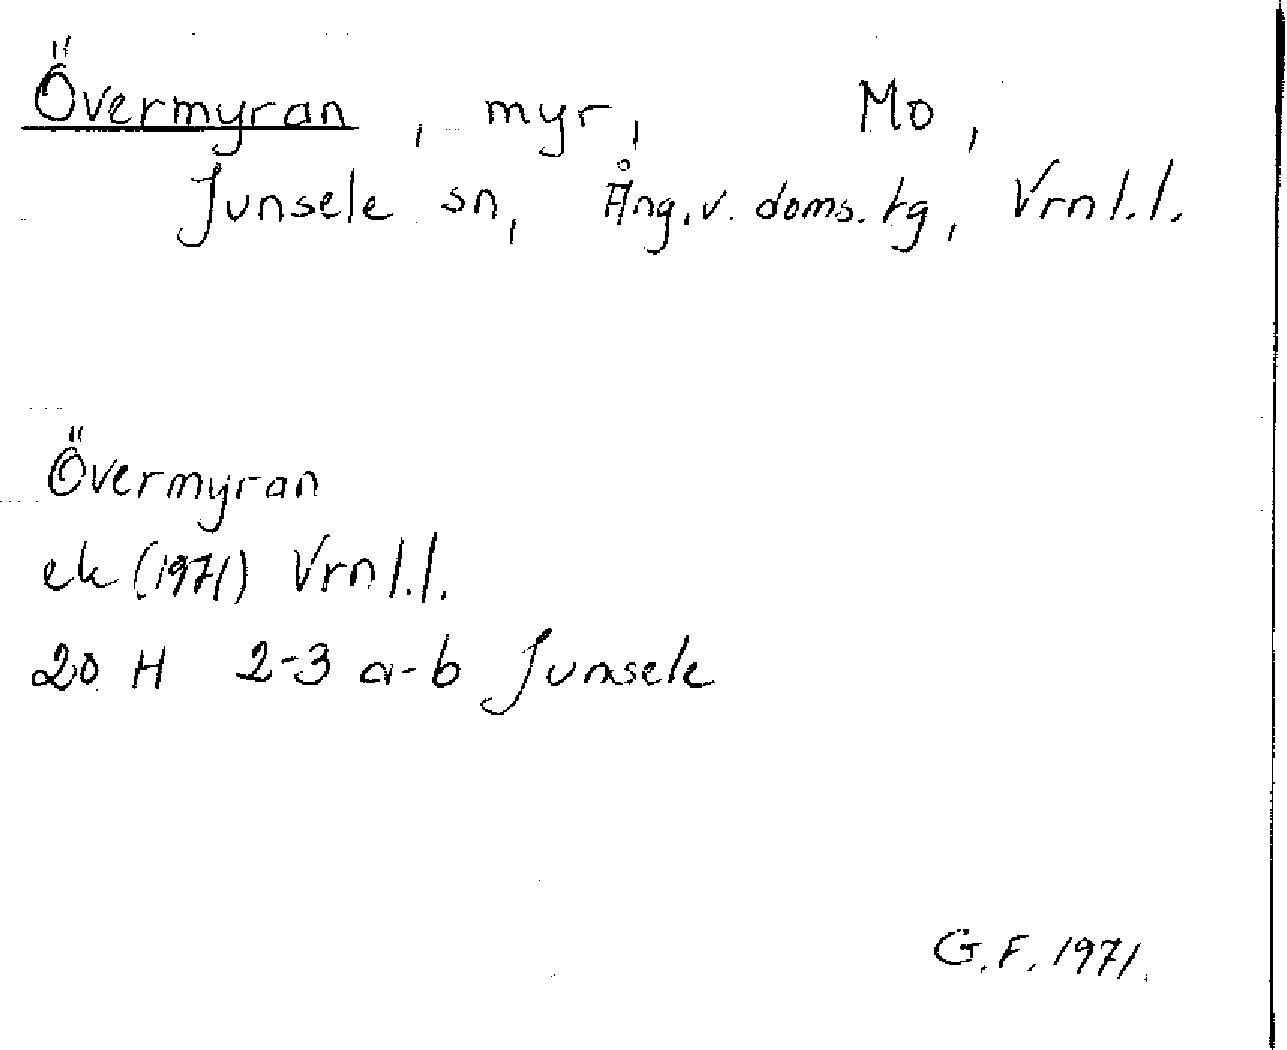 Övermyran, myr, Mo,
Junsele sn, Ång.v. doms. tg, Vrnl.l.
Övermyran
ek (1971) Vrnl.l.
20 H 2-3 a-b Junsele
G.F. 1971.